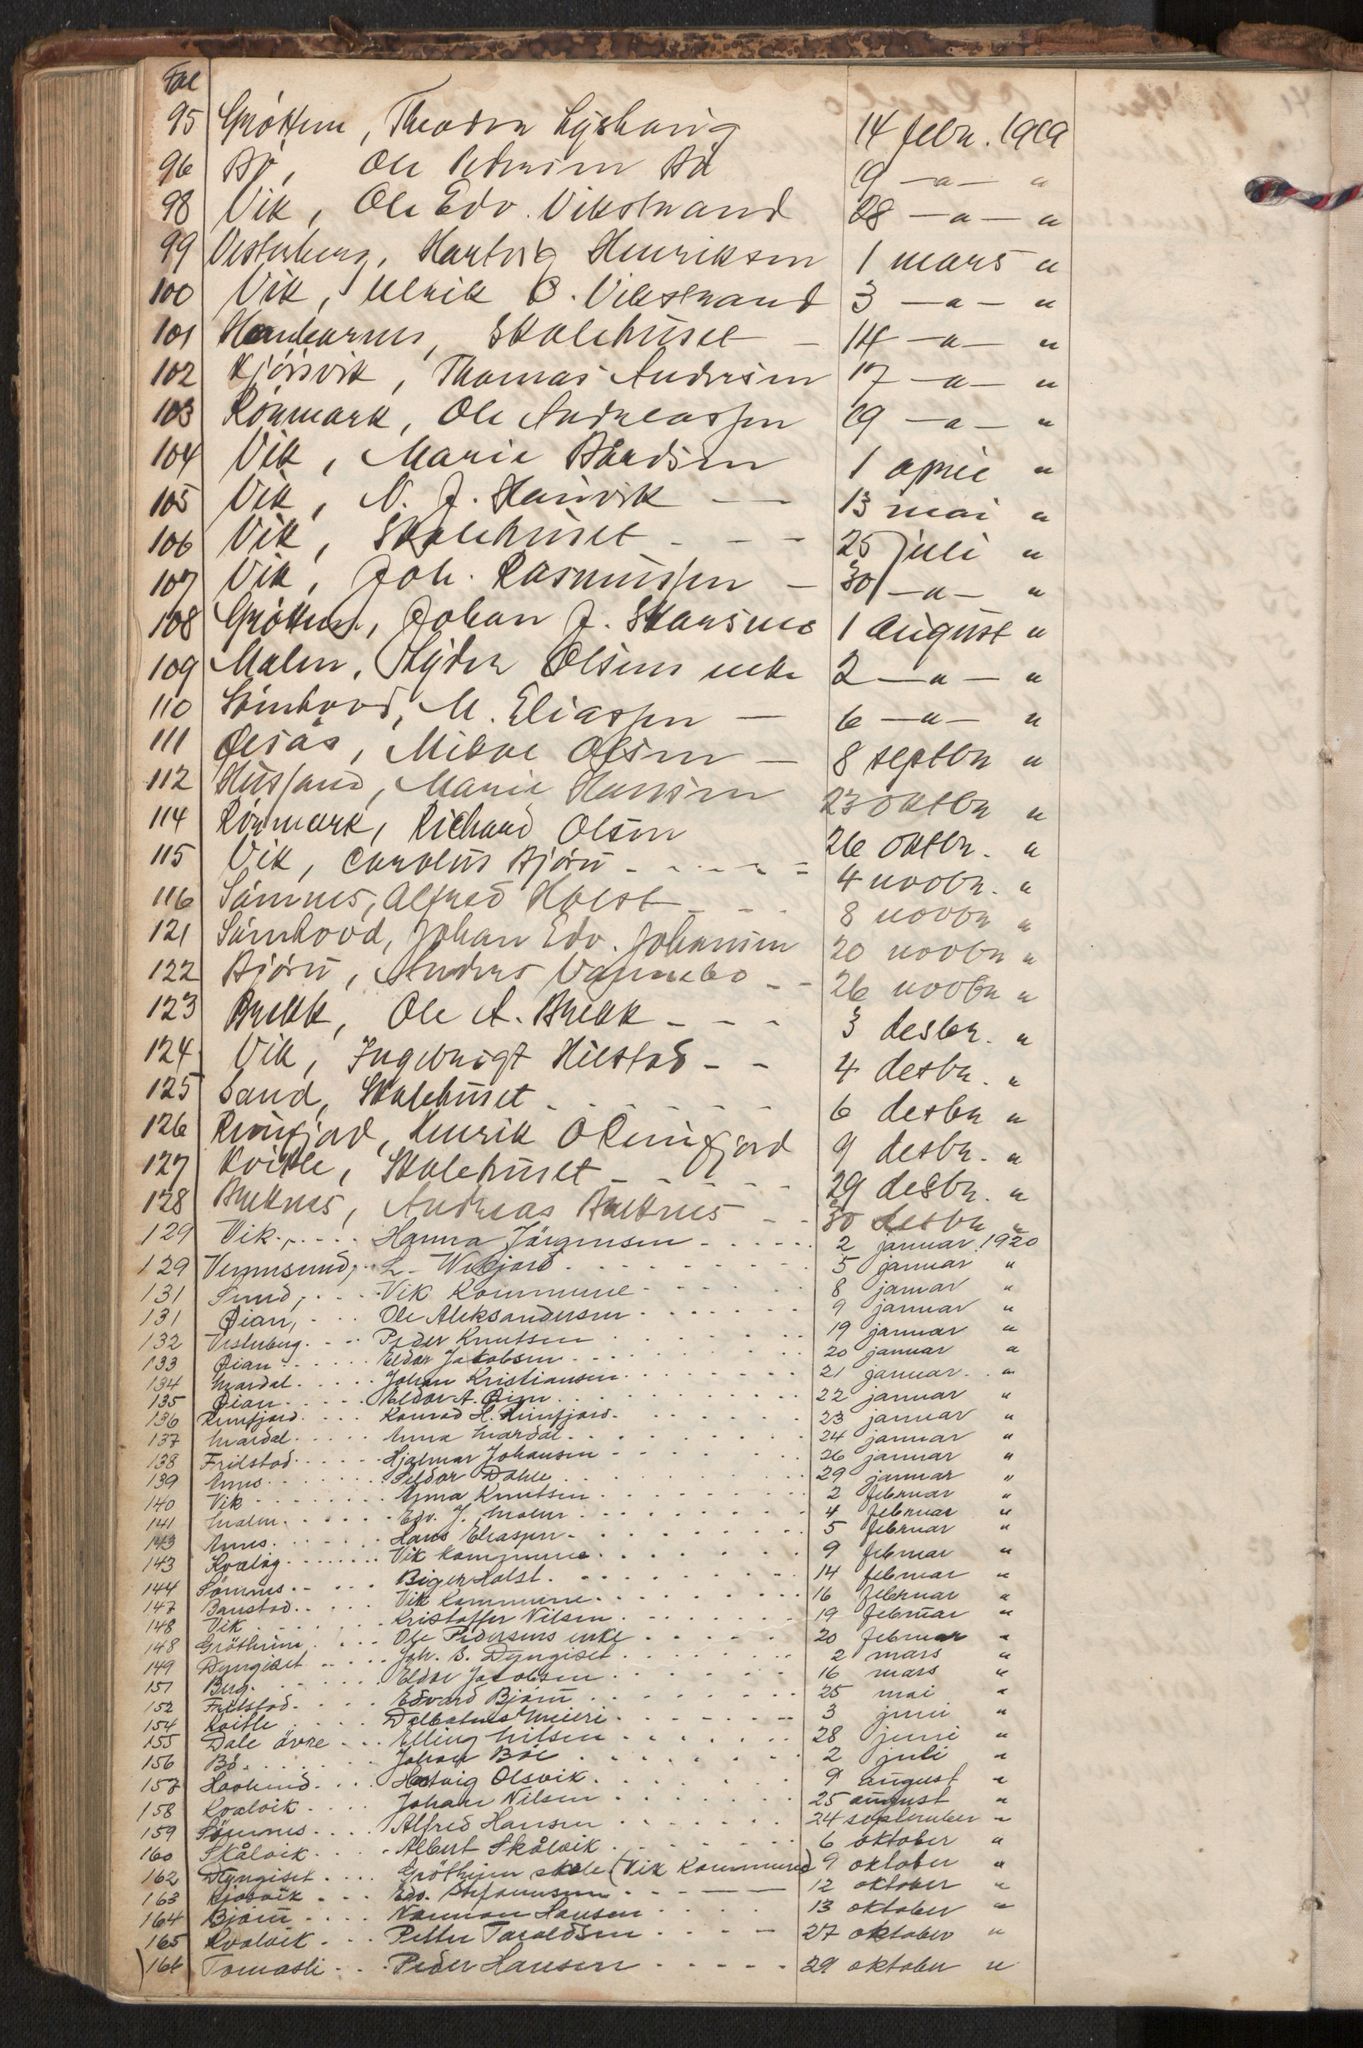 Fol
95 Gröttem, Theodor Lysberg 14 febr. 1919
96 Bø, Ole Pedersen Bø 9 —a— "
98 Vik, Ole Edv. Vikstrand 28 —a— "
99 Vesterberg, Hartvig Henriksen 1 mars "
100 Vik, Ulrik B. Vikstrand 3 —a— "
101 Skolehuset 14 —a— "
102 Kjörsvik, Thomas Andersen 17 —a— "
103 Rönmark, Ole Andreassen 19 —a— "
104 Vik, Marie Bårdsen 1 april "
105 Vik, N. J. 13 mai "
106 Vik, Skolehuset - - - 25 juli "
107 Vik, Joh. Rasmussen - 30 —a— "
108 Gröttem, Johan J. Skarsmo 1 august "
109 Malm, Lyder Olsens enke 2 —a— "
110 Sömhovd, M. Eliassen - 6 —a— "
111 Olsås, Mikal Olsen - 8 septbr "
112 Husfand, Marie Hansen 23 oktbr "
114 Rönmark, Richard Olsen 26 oktbr. "
115 Vik, Carolus Bjørn - - - - 4 novbr. "
116 Sömnes, Alfred Holst - - - 8 novbr "
121 Sömhovd, Johan Edv. Johansen 20 novbr "
122 Bjørn, Anders Vannebo - - 26 novbr "
123 Brekk, Ole A. Brekk - - - 3 desbr. "
124 Vik, Ingebrigt Hilstad - - 4 desbr. "
125 Sand, Skolehuset - - - - 6 desbr "
126 Reinfjord, Henrik O Reinfjord 9 desbr. "
127 Kvitle, Skolehuset - - - - 29 desbr. "
128 Breknes, Andreas Breknes - - 30 desbr "
129 Vik - - - - Hanna Jörgensen - - - - 2 januar 1920
129 Vennsund, - L. Wikjord - - - - 5 januar "
131 Sund, - - - Vik Kommune - - - - 8 januar "
131 Öian, - - - Ole Aleksandersen - - - - 9 januar "
132 Vesterberg - - - Peder Knutsen - - - - 19 januar "
133 Öian - - - - Eldor Jakobsen - - - - 20 januar "
134 Mardal - - - - Johan Kristiansen - - - - 21 januar "
135 Öian - - - - Eldor A. Öien - - - - 22 januar "
136 Reinfjord - - - Konrad H. Reinfjord - - - - 23 januar "
137 Mardal - - - - Anna Mardal - - - - 24 januar "
138 Frilstad - - - - Hjalmar Johansen - - - - 26 januar "
139 Arnes - - - - Peldor Dahle - - - - 29 januar "
140 Vik - - - - Anna Knutsen - - - - 2 februar "
141 Malm - - - - Edv. J. Malm - - - - 4 februar "
143 Arnes - - - - Hans Eliassen - - - - 5 februar "
143 Kvalöy - - - - Vik Kommune - - - - 9 februar "
144 Sömnes - - - - Birger Holst - - - - 14 februar "
147 Banstad - - - - Vik Kommune - - - - 16 februar "
148 Vik - - - - Kristoffer Nilsen - - - - 19 februar "
148 Gröttheim - - - - Ole Pedersens enke - - - - 20 februar "
149 Dyngiset - - - - Joh. S. Dyngiset - - - - 2 mars "
151 Berg - - - - Eldor Jacobsen - - - - 16 mars "
152 Frilstad - - - - Edvard Bjørn - - - - 25 mai "
154 Kvitle - - - - Dalbotnes Meieri - - - - 3 juni "
155 Dale övre - - - Elling Nilsen - - - - 28 juni "
156 Bö - - - - Johan Böe - - - - 2 juli "
157 - - - - Hartvig Olsvik - - - - 9 august "
158 Kvalvik - - - - Johan Nilsen - - - - 25 august "
159 Sömnes - - - - Alfred Hansen - - - - 24 september "
160 Skålvik - - - - Albert Skålvik - - - - 6 oktober "
162 Dyngiset - - - - Gröttheim skole (Vik Kommune) 9 oktober "
163 Kjösvik - - - Edv. Stefansen - - - - 12 oktober "
164 Bjørn - - - - Norman Hansen - - - - 13 oktober "
165 Kvalvik - - - Petter Taraldsen - - - - 27 oktober "
166 Tomasli - - - Peder Hansen - - - - 29 oktober "